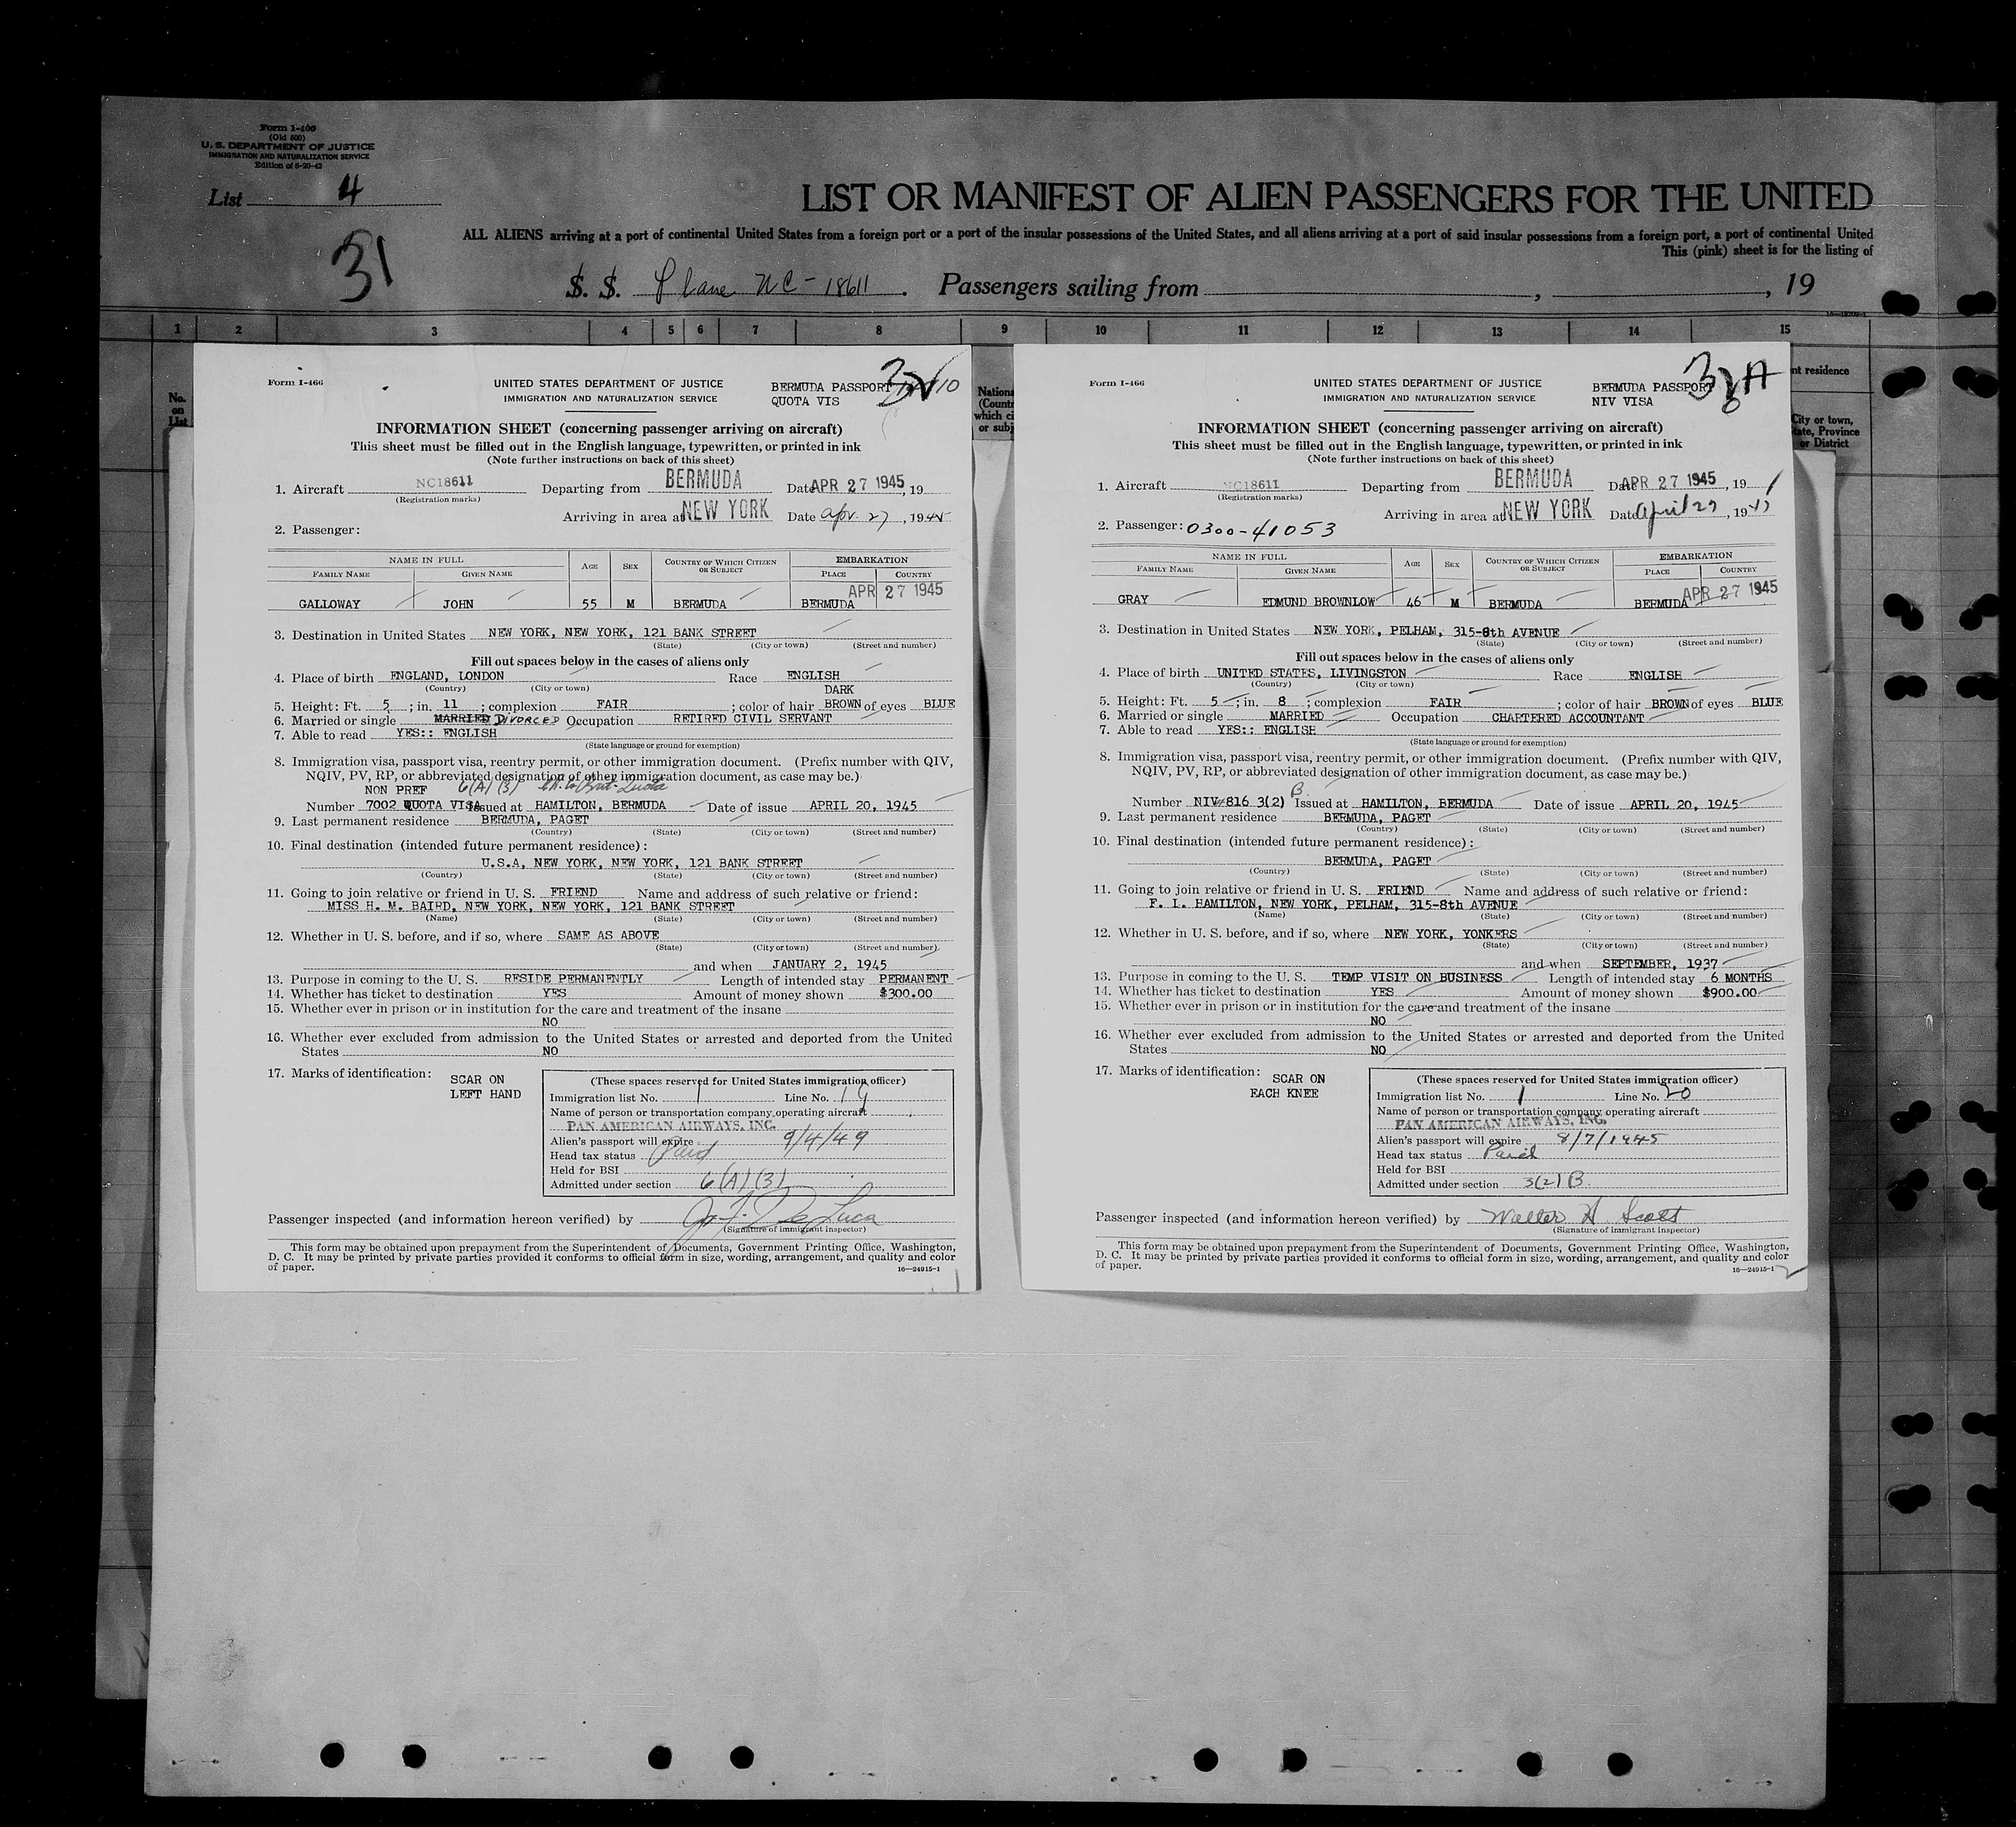 Form I-400
(Old 500)
U. S. DEPARTMENT OF JUSTICE
IMMIGRATION AND NATURALIZATION SERVICE
Edition of 6-20-42
List 4
31
LIST OR MANIFEST OF ALIEN PASSENGERS FOR THE UNITED
ALL ALIENS arriving at a port of continental United States from a foreign port or a port of the insular possessions of the United States, and all aliens arriving at a port of said insular possessions from a foreign port, a port of continental United
This (pink) sheet is for the listing of
S. S. Plane NC-18611. Passengers sailing from , , 19
1 2 3 4 5 6 7 8 9 10 11 12 13 14 15
No.
on
List
Form I-466
UNITED STATES DEPARTMENT OF JUSTICE
IMMIGRATION AND NATURALIZATION SERVICE
BERMUDA PASSPORT
QUOTA VIS
INFORMATION SHEET (concerning passenger arriving on aircraft)
This sheet must be filled out in the English language, typewritten, or printed in ink
(Note further instructions on back of this sheet)
1. Aircraft NC18611 Departing from BERMUDA Date APR 27 1945, 19
(Registration marks)
Arriving in area at NEW YORK Date Apr. 27, 1945
2. Passenger:
NAME IN FULL
FAMILY NAME GIVEN NAME AGE SEX COUNTRY OF WHICH CITIZEN OR SUBJECT EMBARKATION PLACE COUNTRY
APR 27 1945
GALLOWAY JOHN 55 M BERMUDA BERMUDA
3. Destination in United States NEW YORK, NEW YORK, 121 BANK STREET
(State) (City or town) (Street and number)
Fill out spaces below in the cases of aliens only
4. Place of birth ENGLAND, LONDON Race ENGLISH
(Country) (City or town)
DARK
5. Height: Ft. 5 ; in. 11 ; complexion FAIR ; color of hair BROWN of eyes BLUE
6. Married or single MARRIED DIVORCED Occupation RETIRED CIVIL SERVANT
7. Able to read YES:: ENGLISH
(State language or ground for exemption)
8. Immigration visa, passport visa, reentry permit, or other immigration document. (Prefix number with QIV,
NQIV, PV, RP, or abbreviated designation of other immigration document, as case may be.)
NON PREF 6(A)(3)
Number 7002 QUOTA VISA Issued at HAMILTON, BERMUDA Date of issue APRIL 20, 1945
9. Last permanent residence BERMUDA, PAGET
(Country) (State) (City or town) (Street and number)
10. Final destination (intended future permanent residence):
U.S.A, NEW YORK, NEW YORK, 121 BANK STREET
(Country) (State) (City or town) (Street and number)
11. Going to join relative or friend in U. S. FRIEND Name and address of such relative or friend:
MISS H. M. BAIRD, NEW YORK, NEW YORK, 121 BANK STREET
(Name) (State) (City or town) (Street and number)
12. Whether in U. S. before, and if so, where SAME AS ABOVE
(State) (City or town) (Street and number)
and when JANUARY 2, 1945
13. Purpose in coming to the U. S. RESIDE PERMANENTLY Length of intended stay PERMANENT
14. Whether has ticket to destination YES Amount of money shown $300.00
15. Whether ever in prison or in institution for the care and treatment of the insane
NO
16. Whether ever excluded from admission to the United States or arrested and deported from the United
States NO
17. Marks of identification: SCAR ON
LEFT HAND
(These spaces reserved for United States immigration officer)
Immigration list No. 1 Line No. 19
Name of person or transportation company operating aircraft
PAN AMERICAN AIRWAYS, INC.
Alien's passport will expire 9/4/49
Head tax status Paid
Held for BSI
Admitted under section 6(A)(3)
Passenger inspected (and information hereon verified) by De Luca
(Signature of immigrant inspector)
This form may be obtained upon prepayment from the Superintendent of Documents, Government Printing Office, Washington,
D. C. It may be printed by private parties provided it conforms to official form in size, wording, arrangement, and quality and color
of paper.
16—24915-1
Nationa
(Countr
which ci
or subj
Form I-466
UNITED STATES DEPARTMENT OF JUSTICE
IMMIGRATION AND NATURALIZATION SERVICE
BERMUDA PASSPORT
NIV VISA
INFORMATION SHEET (concerning passenger arriving on aircraft)
This sheet must be filled out in the English language, typewritten, or printed in ink
(Note further instructions on back of this sheet)
1. Aircraft NC18611 Departing from BERMUDA Date APR 27 1945, 19
(Registration marks)
Arriving in area at NEW YORK Date April 27, 1945
2. Passenger: 0300-41053
NAME IN FULL
FAMILY NAME GIVEN NAME AGE SEX COUNTRY OF WHICH CITIZEN OR SUBJECT EMBARKATION PLACE COUNTRY
APR 27 1945
GRAY EDMUND BROWNLOW 46 M BERMUDA BERMUDA
3. Destination in United States NEW YORK, PELHAM, 315-8th AVENUE
(State) (City or town) (Street and number)
Fill out spaces below in the cases of aliens only
4. Place of birth UNITED STATES, LIVINGSTON Race ENGLISH
(Country) (City or town)
5. Height: Ft. 5 ; in. 8 ; complexion FAIR ; color of hair BROWN of eyes BLUE
6. Married or single MARRIED Occupation CHARTERED ACCOUNTANT
7. Able to read YES:: ENGLISH
(State language or ground for exemption)
8. Immigration visa, passport visa, reentry permit, or other immigration document. (Prefix number with QIV,
NQIV, PV, RP, or abbreviated designation of other immigration document, as case may be.)
B.
Number NIV#816 3(2) Issued at HAMILTON, BERMUDA Date of issue APRIL 20, 1945
9. Last permanent residence BERMUDA, PAGET
(Country) (State) (City or town) (Street and number)
10. Final destination (intended future permanent residence):
BERMUDA, PAGET
(Country) (State) (City or town) (Street and number)
11. Going to join relative or friend in U. S. FRIEND Name and address of such relative or friend:
F. L. HAMILTON, NEW YORK, PELHAM, 315-8th AVENUE
(Name) (State) (City or town) (Street and number)
12. Whether in U. S. before, and if so, where NEW YORK, YONKERS
(State) (City or town) (Street and number)
and when SEPTEMBER, 1937
13. Purpose in coming to the U. S. TEMP VISIT ON BUSINESS Length of intended stay 6 MONTHS
14. Whether has ticket to destination YES Amount of money shown $900.00
15. Whether ever in prison or in institution for the care and treatment of the insane
NO
16. Whether ever excluded from admission to the United States or arrested and deported from the United
States NO
17. Marks of identification: SCAR ON
EACH KNEE
(These spaces reserved for United States immigration officer)
Immigration list No. 1 Line No. 20
Name of person or transportation company operating aircraft
PAN AMERICAN AIRWAYS, INC.
Alien's passport will expire 8/7/1945
Head tax status Paid
Held for BSI
Admitted under section 3(2)B.
Passenger inspected (and information hereon verified) by Walter H. Scott
(Signature of immigrant inspector)
This form may be obtained upon prepayment from the Superintendent of Documents, Government Printing Office, Washington,
D. C. It may be printed by private parties provided it conforms to official form in size, wording, arrangement, and quality and color
of paper.
16—24915-1
nt residence
City or town,
tate, Province
or District